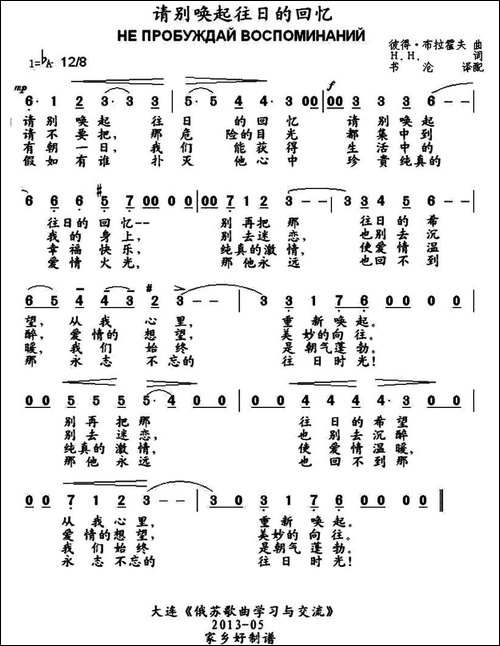 请别唤起往日的回忆
НЕ ПРОБУЖДАЙ ВОСПОМИНАНИЙ
彼得·布拉霍夫 曲
Н. Н. 词
书沦 译配
1=♭A 12/8
mp f
6· 1 2 3· 3 5· 5 4 4· 3 00 00 3 3 3 6
请别唤起 往日的回忆 请别唤起
请不要把, 那危险的目光 都集中到
有朝一日, 我们能获得 生活中的
假如有谁 扑灭他心中 珍贵纯真的
6 6 6 #5 00 00 00 7 1 2 3 3 4 4 5
往日的回忆-- 别再把那 往日的希
我的身上, 别去迷恋, 也别去沉
幸福快乐, 纯真的激情, 使爱情温
爱情火光, 那他永远 也回不到
6 5 4 4 3 #2 3 - - 3 3 1 7 6 0 0
望, 从我心里, 重新唤起。
醉, 爱情的想望, 美妙的向往。
暖, 我们始终 是朝气蓬勃。
那 永志不忘的 往日时光!
0 0 5 5 5 5 4 4 4 3 0 0
别再把那 往日的希望
别去迷恋, 也别去沉醉
纯真的激情, 使爱情温暖,
那他永远 也回不到那
0 0 7 1 2 3 - - 3 0 3 1 7 6 0 0
从我心里, 重新唤起。
爱情的想望, 美妙的向往。
我们始终 是朝气蓬勃。
永志不忘的 往日时光!
大连《俄苏歌曲学习与交流》
2013-05
家乡好制谱